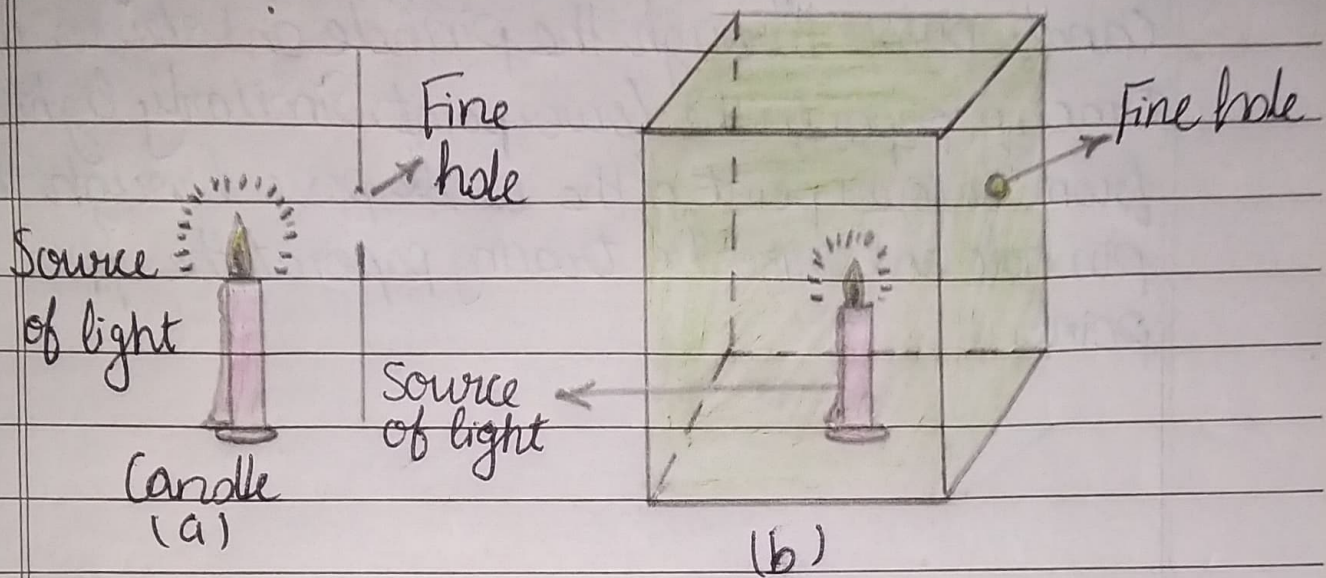 Fine
hole
Source
of light
Candle
(a)
Source
of light
Fine hole
(b)